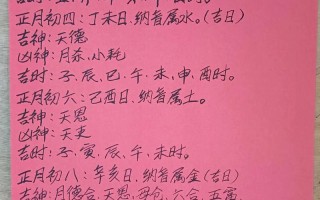 正月初四：丁未日，纳音属水。（吉日）
吉神：天德
凶神：月杀、小耗
吉时：子、辰、巳、午、未、申、酉时。
正月初六：己酉日，纳音属土。
吉神：天恩
凶神：天吏
吉时：子、寅、辰、午、未时。
正月初八：辛亥日，纳音属金（吉日）
吉神：月德合、天恩、母仓、六合、五富、